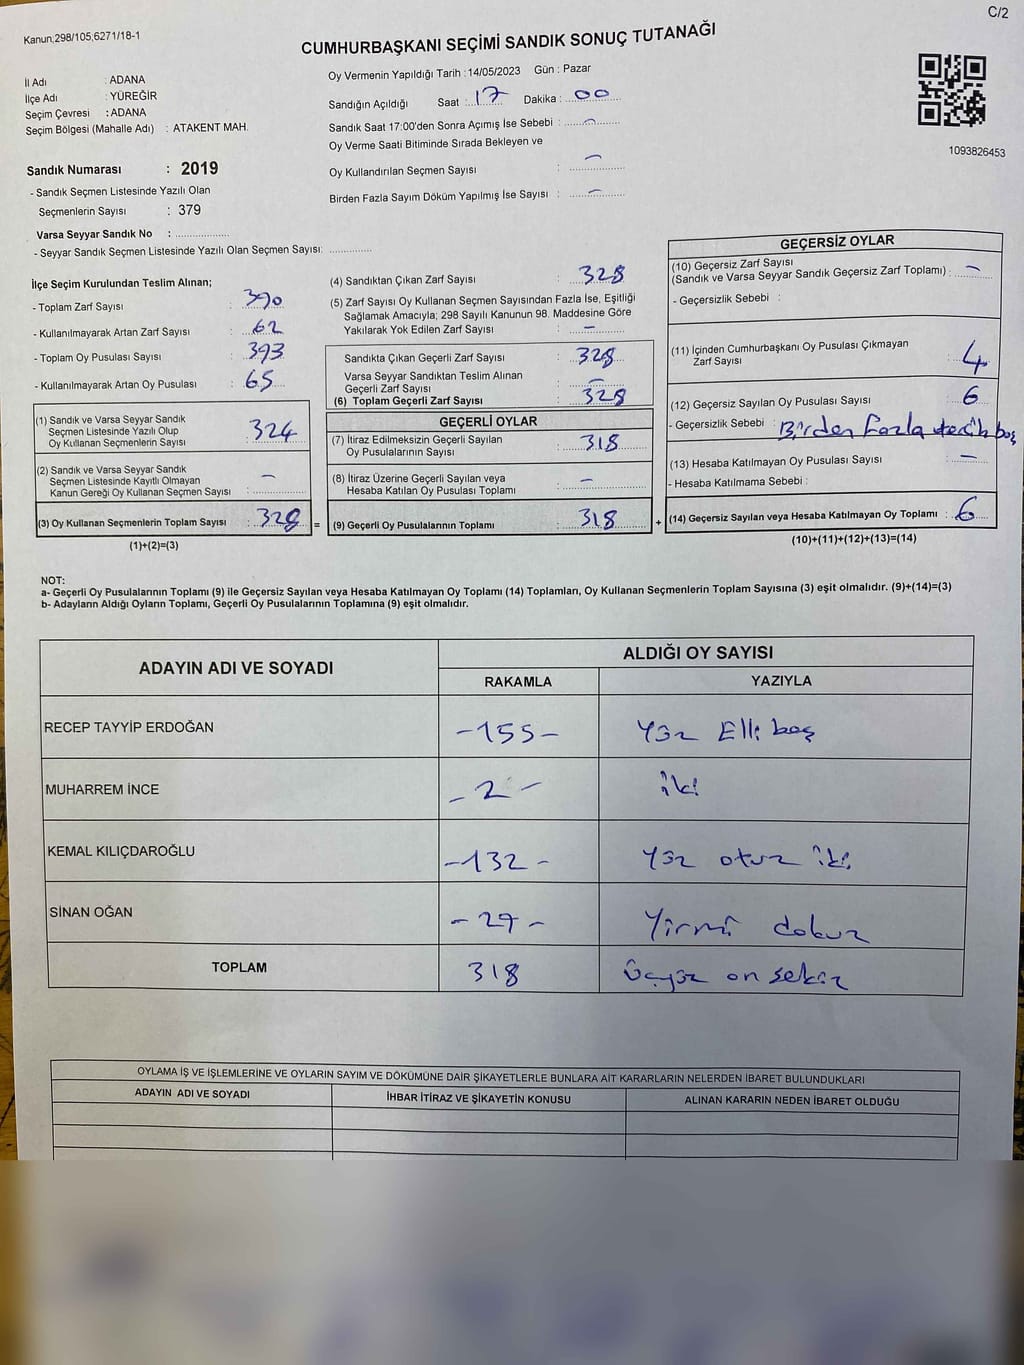 C/2
Kanun;298/105;6271/18-1
CUMHURBAŞKANI SEÇİMİ SANDIK SONUÇ TUTANAĞI
İl Adı : ADANA
İlçe Adı : YÜREĞİR
Seçim Çevresi : ADANA
Seçim Bölgesi (Mahalle Adı) : ATAKENT MAH.
Oy Vermenin Yapıldığı Tarih : 14/05/2023 Gün : Pazar
Sandığın Açıldığı Saat : 17 Dakika : 00
Sandık Saat 17:00'den Sonra Açımış İse Sebebi : -
Oy Verme Saati Bitiminde Sırada Bekleyen ve
Oy Kullandırılan Seçmen Sayısı : -
Birden Fazla Sayım Döküm Yapılmış İse Sayısı : -
1093826453
Sandık Numarası : 2019
- Sandık Seçmen Listesinde Yazılı Olan
Seçmenlerin Sayısı : 379
Varsa Seyyar Sandık No : ....................
- Seyyar Sandık Seçmen Listesinde Yazılı Olan Seçmen Sayısı: ................
İlçe Seçim Kurulundan Teslim Alınan;
- Toplam Zarf Sayısı : 390
- Kullanılmayarak Artan Zarf Sayısı : 62
- Toplam Oy Pusulası Sayısı : 393
- Kullanılmayarak Artan Oy Pusulası : 65
(1) Sandık ve Varsa Seyyar Sandık
Seçmen Listesinde Yazılı Olup
Oy Kullanan Seçmenlerin Sayısı : 324
(2) Sandık ve Varsa Seyyar Sandık
Seçmen Listesinde Kayıtlı Olmayan
Kanun Gereği Oy Kullanan Seçmen Sayısı : -
(3) Oy Kullanan Seçmenlerin Toplam Sayısı : 328 =
(1)+(2)=(3)
(4) Sandıktan Çıkan Zarf Sayısı : 328
(5) Zarf Sayısı Oy Kullanan Seçmen Sayısından Fazla İse, Eşitliği
Sağlamak Amacıyla; 298 Sayılı Kanunun 98. Maddesine Göre
Yakılarak Yok Edilen Zarf Sayısı : -
Sandıkta Çıkan Geçerli Zarf Sayısı : 328
Varsa Seyyar Sandıktan Teslim Alınan
Geçerli Zarf Sayısı : -
(6) Toplam Geçerli Zarf Sayısı : 328
GEÇERLİ OYLAR
(7) İtiraz Edilmeksizin Geçerli Sayılan
Oy Pusulalarının Sayısı : 318
(8) İtiraz Üzerine Geçerli Sayılan veya
Hesaba Katılan Oy Pusulası Toplamı : -
(9) Geçerli Oy Pusulalarının Toplamı : 318 +
GEÇERSİZ OYLAR
(10) Geçersiz Zarf Sayısı
(Sandık ve Varsa Seyyar Sandık Geçersiz Zarf Toplamı) : -
- Geçersizlik Sebebi :
(11) İçinden Cumhurbaşkanı Oy Pusulası Çıkmayan
Zarf Sayısı : 4
(12) Geçersiz Sayılan Oy Pusulası Sayısı : 6
- Geçersizlik Sebebi : Birden fazla tercih boş
(13) Hesaba Katılmayan Oy Pusulası Sayısı : -
- Hesaba Katılmama Sebebi :
(14) Geçersiz Sayılan veya Hesaba Katılmayan Oy Toplamı : 6
(10)+(11)+(12)+(13)=(14)
NOT:
a- Geçerli Oy Pusulalarının Toplamı (9) ile Geçersiz Sayılan veya Hesaba Katılmayan Oy Toplamı (14) Toplamları, Oy Kullanan Seçmenlerin Toplam Sayısına (3) eşit olmalıdır. (9)+(14)=(3)
b- Adayların Aldığı Oyların Toplamı, Geçerli Oy Pusulalarının Toplamına (9) eşit olmalıdır.
ADAYIN ADI VE SOYADI
ALDIĞI OY SAYISI
RAKAMLA YAZIYLA
RECEP TAYYİP ERDOĞAN -155- Yüz Elli beş
MUHARREM İNCE -2- iki
KEMAL KILIÇDAROĞLU -132- Yüz otuz iki
SİNAN OĞAN -29- Yirmi dokuz
TOPLAM 318 Üçyüz on sekiz
OYLAMA İŞ VE İŞLEMLERİNE VE OYLARIN SAYIM VE DÖKÜMÜNE DAİR ŞİKAYETLERLE BUNLARA AİT KARARLARIN NELERDEN İBARET BULUNDUKLARI
ADAYIN ADI VE SOYADI İHBAR İTİRAZ VE ŞİKAYETİN KONUSU ALINAN KARARIN NEDEN İBARET OLDUĞU